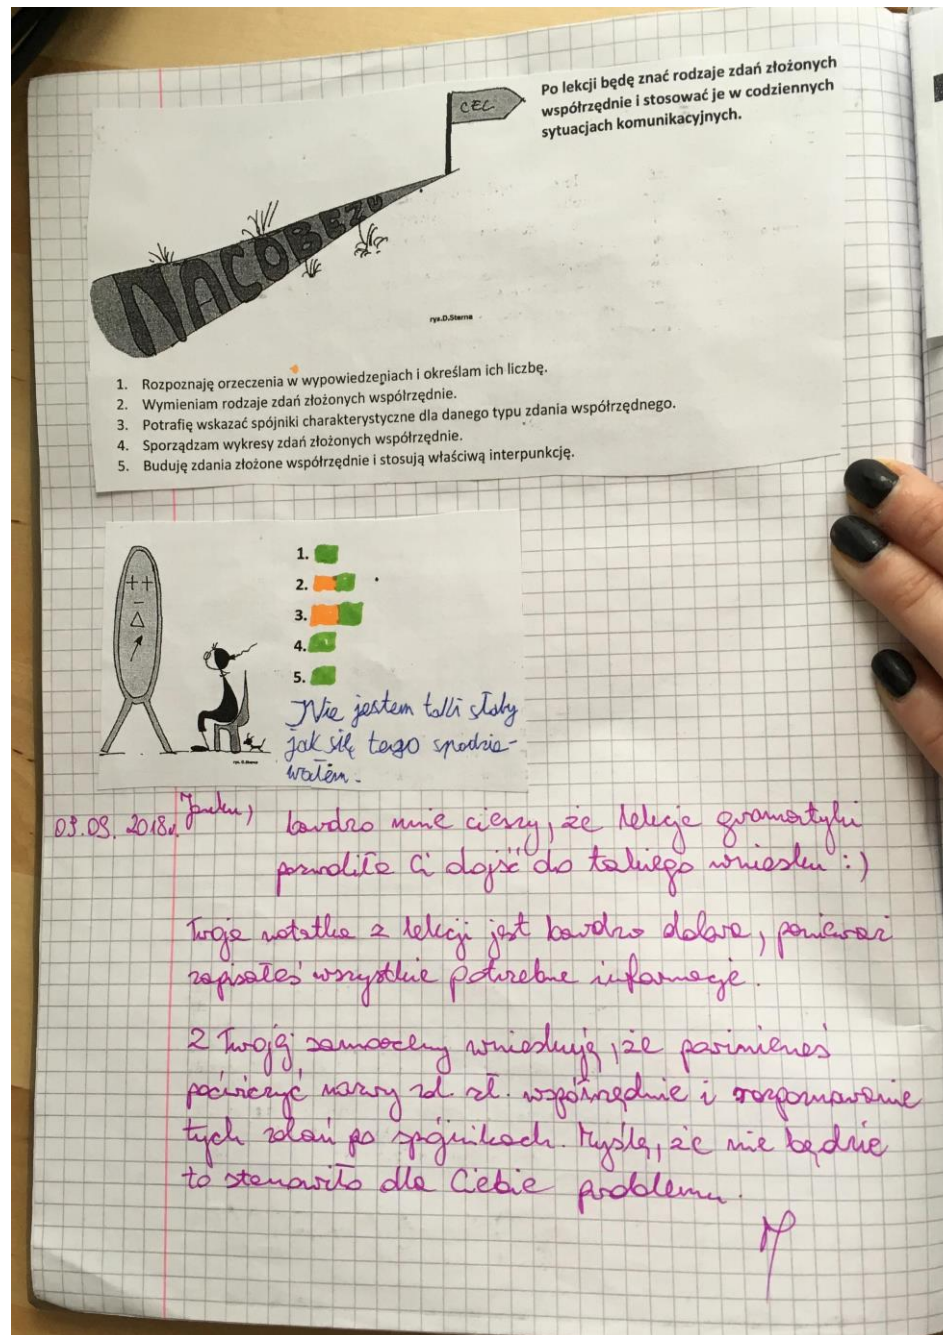 CEL
Po lekcji będę znać rodzaje zdań złożonych
współrzędnie i stosować je w codziennych
sytuacjach komunikacyjnych.
NACOBEZU
rys.D.Sterna
1. Rozpoznaję orzeczenia w wypowiedzeniach i określam ich liczbę.
2. Wymieniam rodzaje zdań złożonych współrzędnie.
3. Potrafię wskazać spójniki charakterystyczne dla danego typu zdania współrzędnego.
4. Sporządzam wykresy zdań złożonych współrzędnie.
5. Buduję zdania złożone współrzędnie i stosują właściwą interpunkcję.
++
-
Δ
1.
2.
3.
4.
5.
rys. D.Sterna
Nie jestem taki słaby
jak się tego spodzie-
wałem.
03.09.2018r. Janku,
bardzo mnie cieszy, że lekcje gramatyki
pozwoliła Ci dojść do takiego wniosku :)
Twoja notatka z lekcji jest bardzo dobra, ponieważ
zapisałeś wszystkie potrzebne informacje.
Z Twojej samooceny wnioskuję, że powinieneś
poćwiczyć nazwy zd. zł. współrzędnie i rozpoznawanie
tych zdań po spójnikach. Myślę, że nie będzie
to stanowiło dla Ciebie problemu.